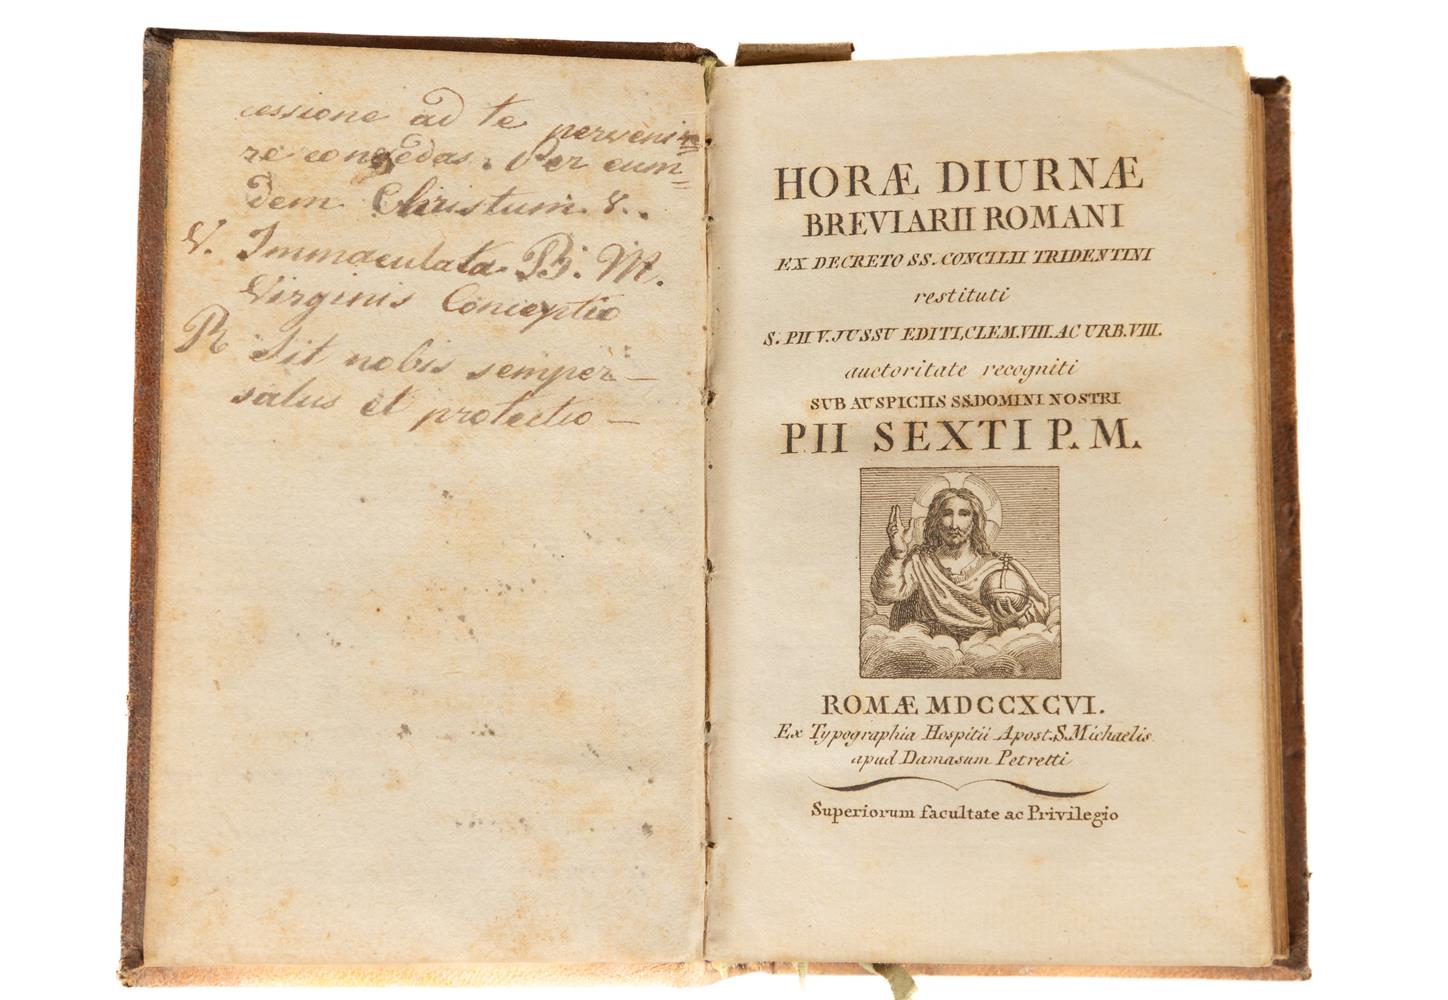 cessione ad te perveni=
re concedas. Per eum=
dem Christum &..
V. Immaculata B. M.
Virginis Conceptio
R Sit nobis semper —
salus et protectio —
HORÆ DIURNÆ
BREVIARII ROMANI
EX DECRETO SS. CONCILII TRIDENTINI
restituti
S. PII V. JUSSU EDITI, CLEM. VIII. AC URB. VIII.
auctoritate recogniti
SUB AUSPICIIS SS. DOMINI NOSTRI
PII SEXTI P. M.
ROMÆ MDCCXCVI.
Ex Typographia Hospitii Apost. S. Michaelis
apud Damasum Petretti
Superiorum facultate ac Privilegio